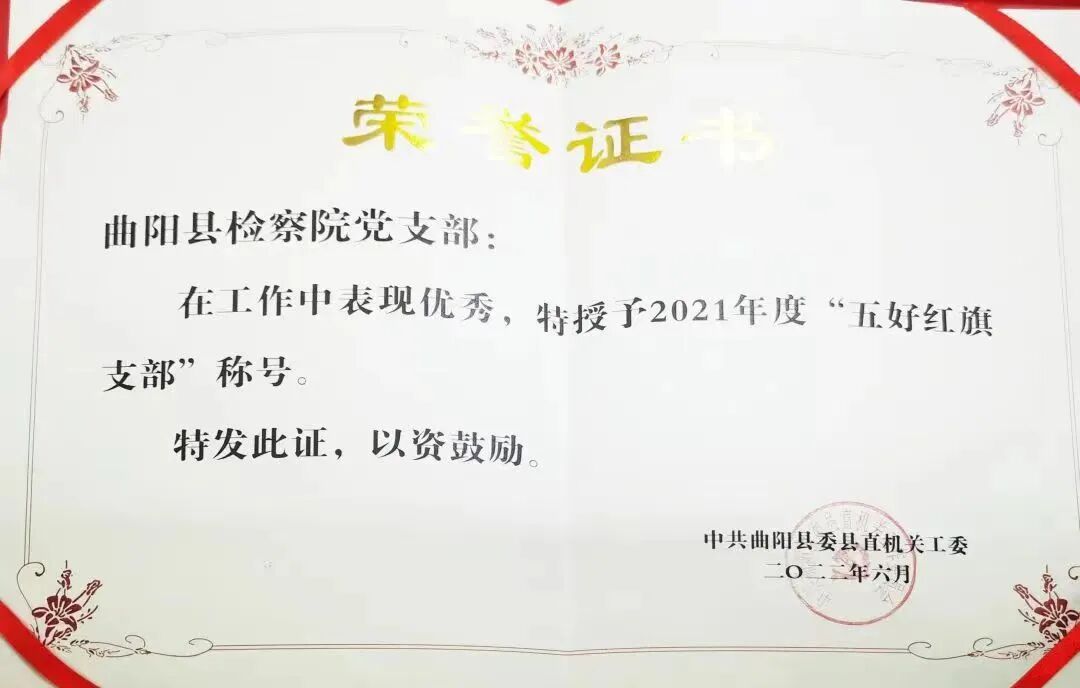 荣誉证书
曲阳县检察院党支部：
在工作中表现优秀，特授予2021年度“五好红旗
支部”称号。
特发此证，以资鼓励。
中共曲阳县委县直机关工委
二〇二二年六月